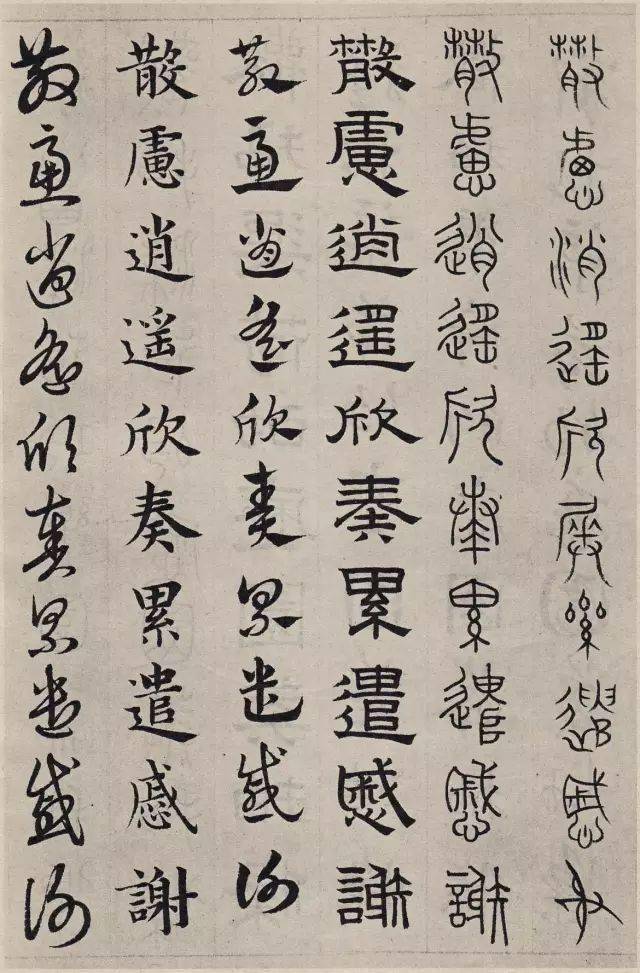 散慮消遙欣奏累遣慼謝
散慮逍遙欣奏累遣慼謝
散慮逍遙欣奏累遣慼謝
散慮逍遙欣奏累遣慼謝
散慮逍遙欣奏累遣慼謝
散慮逍遙欣奏累遣慼謝